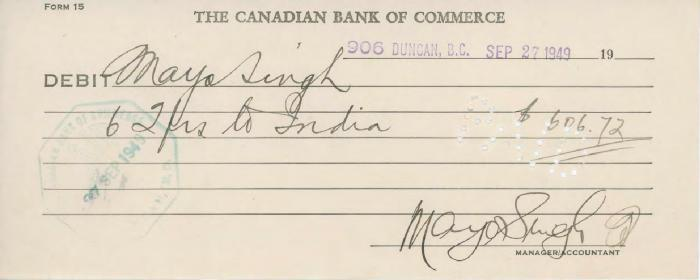 FORM 15
THE CANADIAN BANK OF COMMERCE
906 DUNCAN, B.C. SEP 27 1949 19
DEBIT Mayo Singh
6 Tfrs to India $ 506.72
27 SEP 1949
Mayo Singh
MANAGER/ACCOUNTANT